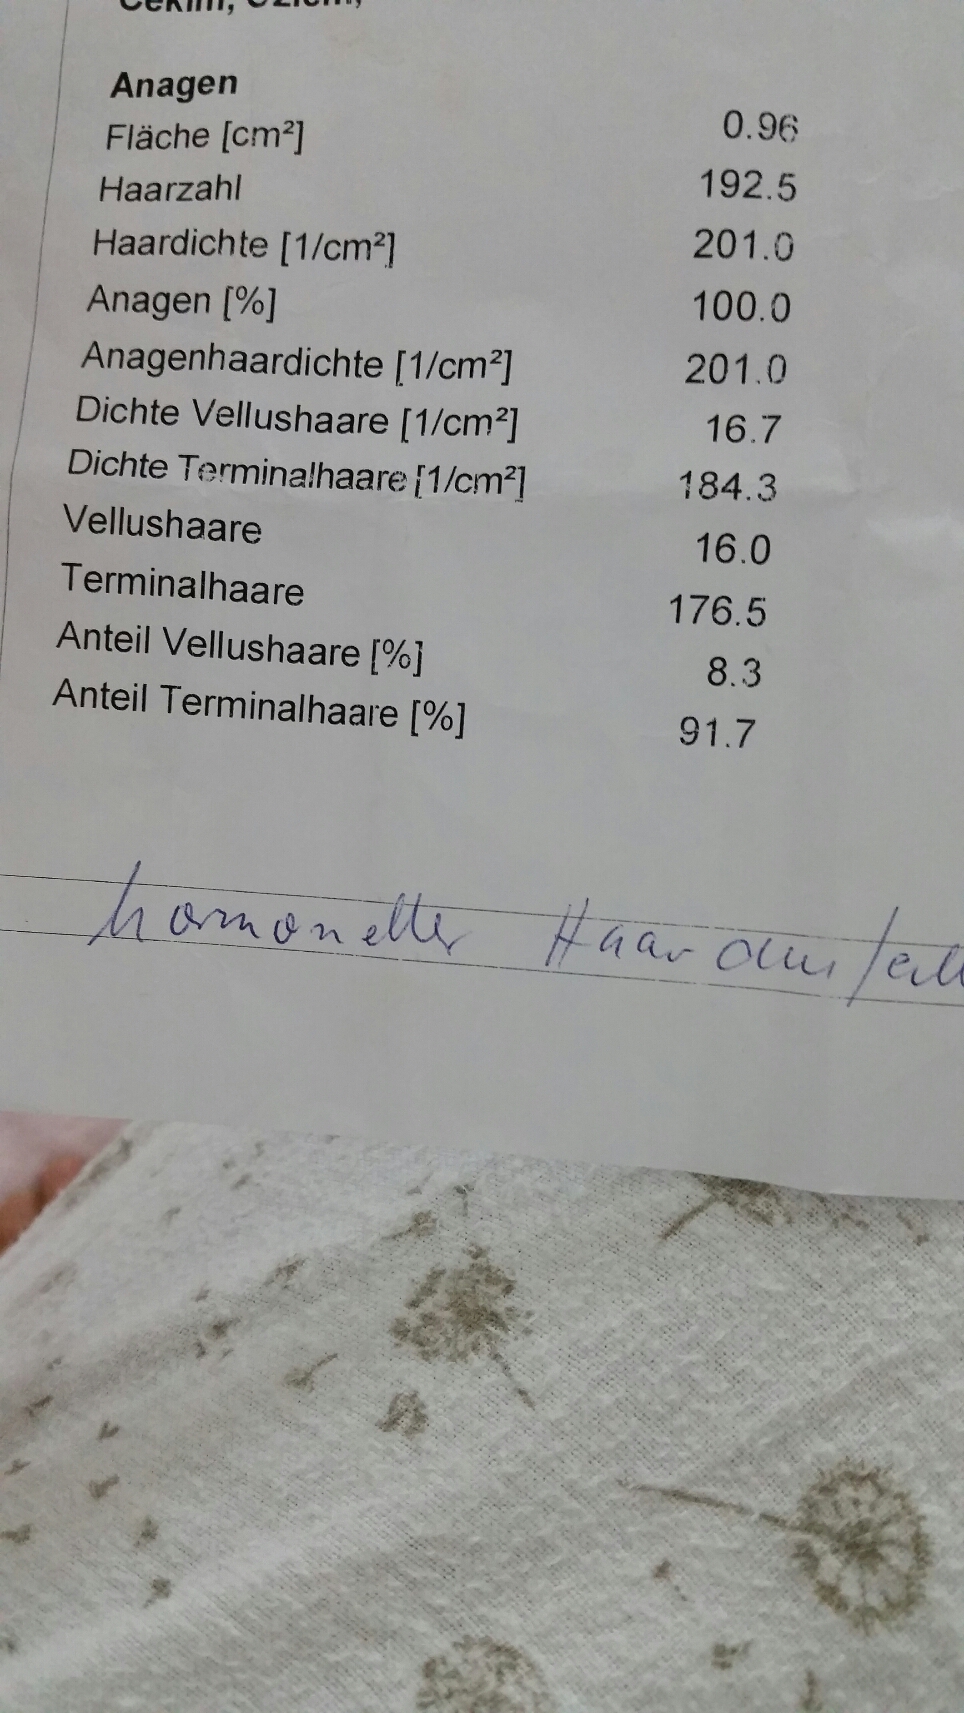 Anagen
Fläche [cm²] 0.96
Haarzahl 192.5
Haardichte [1/cm²] 201.0
Anagen [%] 100.0
Anagenhaardichte [1/cm²] 201.0
Dichte Vellushaare [1/cm²] 16.7
Dichte Terminalhaare [1/cm²] 184.3
Vellushaare 16.0
Terminalhaare 176.5
Anteil Vellushaare [%] 8.3
Anteil Terminalhaare [%] 91.7
hormoneller Haarausfall